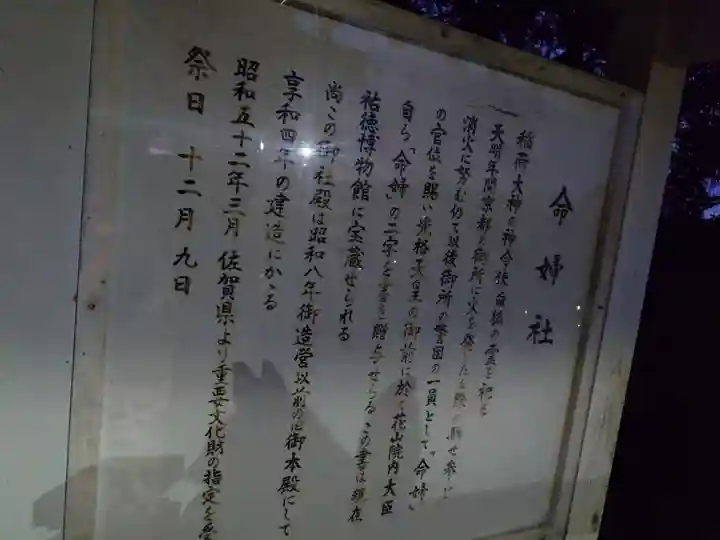 命婦社
稲荷大神の神令使白狐の霊を祀る
天明年間京都の御所に火を発したる際 馳せ参じ
消火に努む仍て以後御所の警固の一員として「命婦」
の官位を賜い光格天皇の御前に於て花山院内大臣
自ら「命婦」の二字を書き贈与せらる この書は現在
祐徳博物館に宝蔵せられる
尚この御社殿は昭和八年御造営以前の旧御本殿にして
享和四年の建造にかゝる
昭和五十二年三月 佐賀県より重要文化財の指定を受
祭日 十二月九日